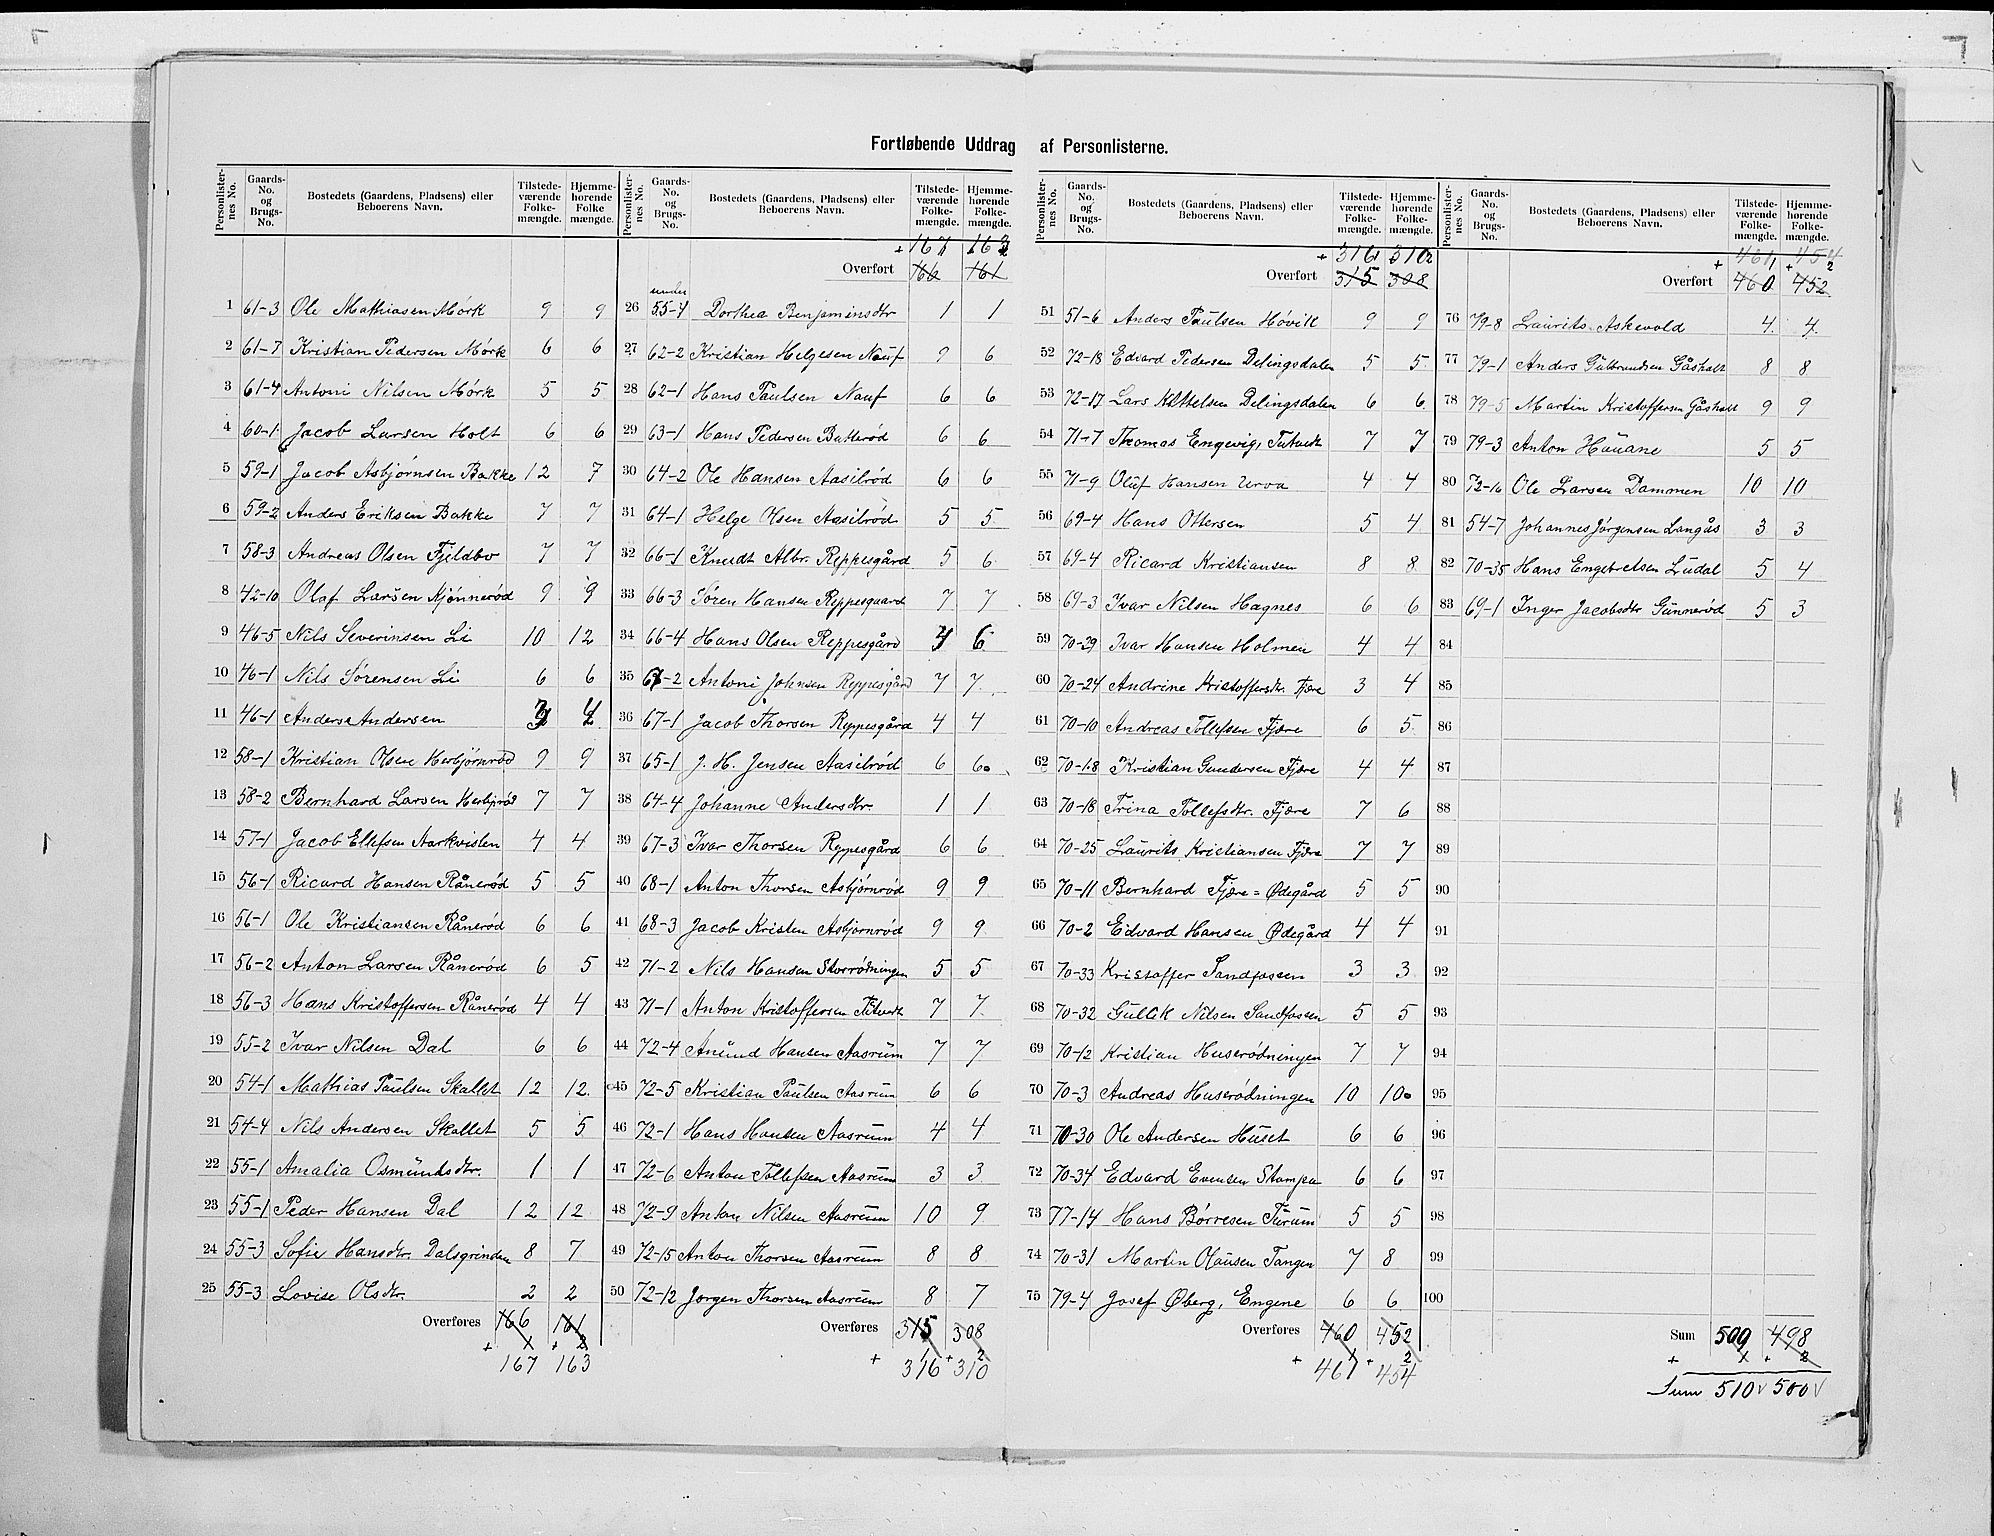 Fortløbende Uddrag af Personlisterne.
Personlister- nes No. | Gaards- No. og Brugs- No. | Bostedets (Gaardens, Pladsens) eller Beboerens Navn. | Tilstede- værende Folke- mængde. | Hjemme- hørende Folke mængde.
1 61-3 Ole Mathiasen Mørk 9 9
2 61-7 Kristian Pedersen Mørk 6 6
3 61-4 Antoni Nilsen Mørk 5 5
4 60-1 Jacob Larsen Holt 6 6
5 59-1 Jacob Asbjørnsen Bakke 12 7
6 59-2 Anders Eriksen Bakke 7 7
7 58-3 Andreas Olsen Fjeldbo 7 7
8 42-10 Olaf Larsen Mjønnerød 9 9
9 46-5 Nils Severinsen Li 10 12
10 46-1 Nils Sørensen Li 6 6
11 46-1 Anders Andersen
12 58-1 Kristian Olsen Herbjørnrød 9 9
13 58-2 Bernhard Larsen 7 7
14 57-1 Jacob Ellefsen Aarkvislen 4 4
15 56-1 Ricard Hansen Rånerød 5 5
16 56-1 Ole Kristiansen Rånerød 6 6
17 56-2 Anton Larsen Rånerød 6 5
18 56-3 Hans Kristoffersen Rånerød 4 4
19 55-2 Ivar Nilsen Dal 6 6
20 54-1 Mathias Paulsen Skallet 12 12
21 54-4 Nils Andersen Skallet 5 5
22 55-1 Amalia Osmundsdtr. 1 1
23 55-1 Peder Hansen Dal 12 12
24 55-3 Sofie Hansdtr. Dalsgrinden 8 7
25 55-3 Lovise Olsdtr. 2 2
Overføres 166 161
+ 1 + 2
167 163
Personlister- nes No. | Gaards- No. og Brugs- No. | Bostedets (Gaardens, Pladsens) eller Beboerens Navn. | Tilstede- værende Folke- mængde. | Hjemme- hørende Folke- mængde.
+ 167 163
Overført 166 161
under
26 55-4 Dorthea Benjaminsdtr 1 1
27 62-2 Kristian Helgesen Nauf 9 6
28 62-1 Hans Paulsen Nauf 6 6
29 63-1 Hans Pedersen Batterød 6 6
30 64-2 Ole Hansen Aasilrød 6 6
31 64-1 Helge Olsen Aasilrød 5 5
32 66-1 Knudt Albr. Reppesgård 5 6
33 66-3 Søren Hansen Reppesgaard 7 7
34 66-4 Hans Olsen Reppesgård 6
35 67-2 Antoni Johnsen Reppesgård 7 7
36 67-1 Jacob Thorsen Reppesgård 4 4
37 65-1 J. H. Jensen Aasilrød 6 6
38 64-4 Johanne Andersdtr. 1 1
39 67-3 Ivar Thorsen Reppesgård 6 6
40 68-1 Anton Thorsen Asbjørnrød 9 9
41 68-3 Jacob Kristen Asbjørnrød 9 9
42 71-2 Nils Hansen Storrødningen 5 5
43 71-1 Anton Kristoffersen Tutvedt 7 7
44 72-4 Anund Hansen Aasrum 7 7
45 72-5 Kristian Paulsen Aasrum 6 6
46 72-1 Hans Hansen Aasrum 4 4
47 72-6 Anton Tollefsen Aasrum 3 3
48 72-9 Anton Nilsen Aasrum 10 9
49 72-15 Anton Thorsen Aasrum 8 8
50 72-12 Jørgen Thorsen Aasrum 8 7
Overføres 315 308
+ 1 + 2
316 310
Personlister- nes No. | Gaards- No. og Brugs- No. | Bostedets (Gaardens, Pladsens) eller Beboerens Navn. | Tilstede- værende Folke- mængde. | Hjemme- hørende Folke- mængde.
+ 316 310
Overført 315 308
51 51-6 Anders Paulsen Høvik 9 9
52 72-18 Edvard Pedersen Delingsdalen 5 5
53 72-17 Lars Kittelsen Delingsdalen 6 6
54 71-7 Thomas Engevig, Tutvedt 7 7
55 71-9 Oluf Hansen Urva 4 4
56 69-4 Hans Ottersen 5 4
57 69-4 Ricard Kristiansen 8 8
58 69-3 Ivar Nilsen Hagnes 6 6
59 70-29 Ivar Hansen Holmen 4 4
60 70-24 Andrine Kristoffersdtr. Fjære 3 4
61 70-10 Andreas Tollefsen Fjære 6 5
62 70-18 Kristian Gundersen Fjære 4 4
63 70-18 Trina Tollefsdtr. Fjære 7 6
64 70-25 Laurits Kristiansen Fjære 7 7
65 70-11 Bernhard Fjære=Ødegård 5 5
66 70-2 Edvard Hansen Ødegård 4 4
67 70-33 Kristoffer Sandfossen 3 3
68 70-32 Gullik Nilsen Sandfossen 5 5
69 70-12 Kristian Huserødningen 7 7
70 70-3 Andreas Huserødningen 10 10
71 70-30 Ole Andersen Huset 6 6
72 70-34 Edvard Evensen Stampa 6 6
73 77-14 Hans Børresen Furum 5 5
74 70-31 Martin Olausen Tangen 7 8
75 79-4 Josef Øberg, Engene 6 6
Overføres 460 452
+ 1 + 2
461 454
Personlister- nes No. | Gaards- No. og Brugs- No. | Bostedets (Gaardens, Pladsens) eller Beboerens Navn. | Tilstede- værende Folke- mængde. | Hjemme- hørende Folke- mængde.
+ 461 + 454
Overført 460 452
76 79-8 Laurits Askevold 4 4
77 79-1 Anders Gulbrandsen Gåsholt 8 8
78 79-5 Martin Kristoffersen Gåsholt 9 9
79 79-3 Anton Hauane 5 5
80 72-16 Ole Larsen Dammen 10 10
81 54-7 Johannes Jørgensen Langås 3 3
82 70-35 Hans Engebretsen Ludal 5 4
83 69-1 Inger Jacobsdtr Gunnerød 5 3
84
85
86
87
88
89
90
91
92
93
94
95
96
97
98
99
100
Sum 509 498
+ 1 + 2
Sum 510 500